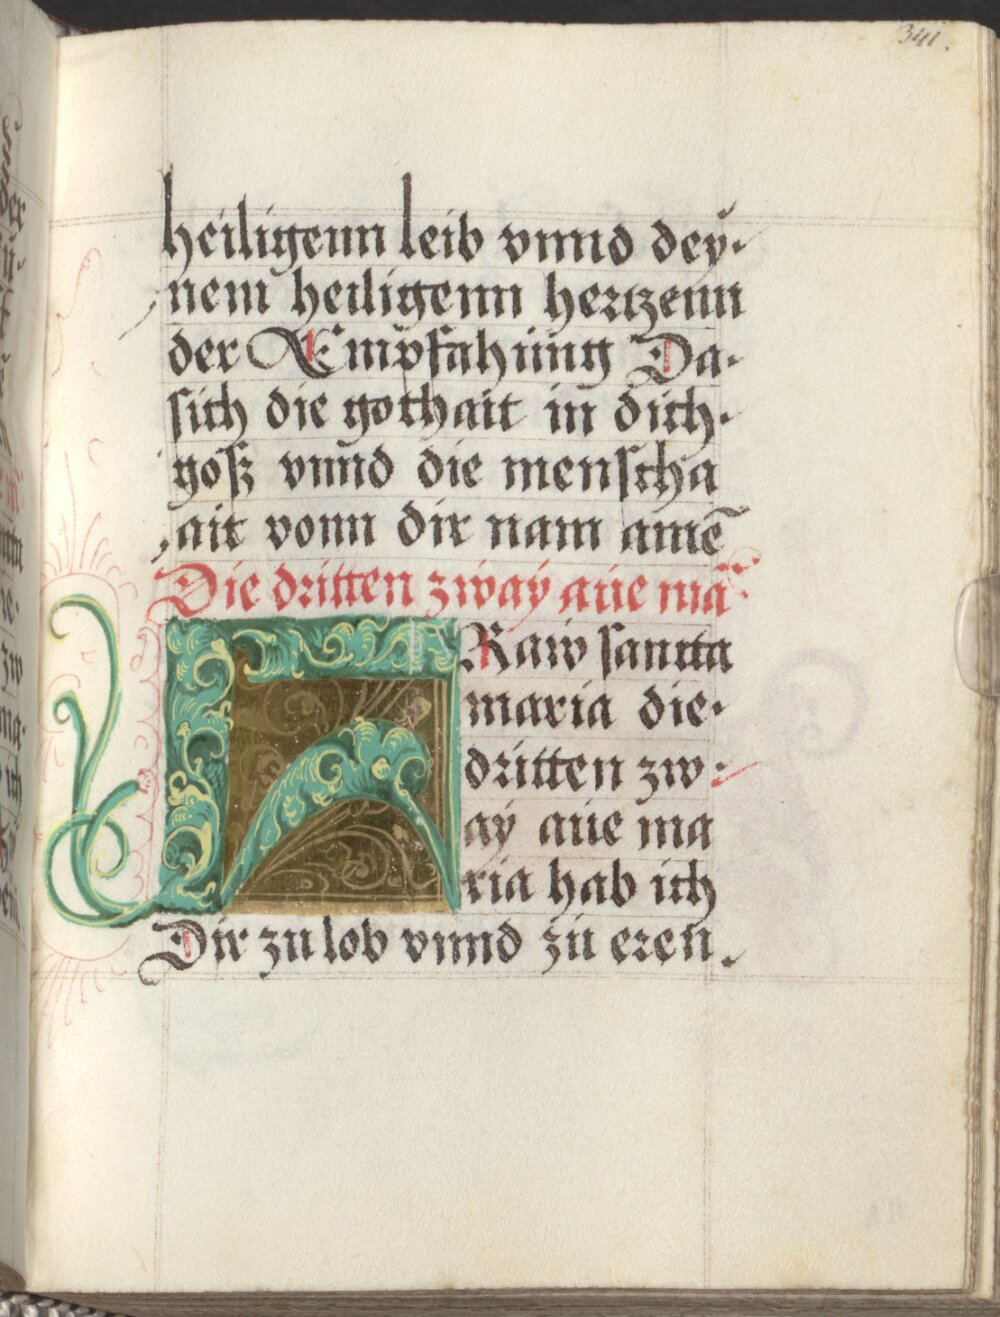 341.
heiligenn leib vnnd dey-
nem heiligenn hertzenn
der Empfahung Da-
sich die gothait in dich-
goß vnnd die menscha
ait vonn dir nam amē
Die dritten zway aue mā
FRaw sancta
maria die-
dritten zw-
aÿ aue ma
ria hab ich
Dir zu lob vnnd zu eren.